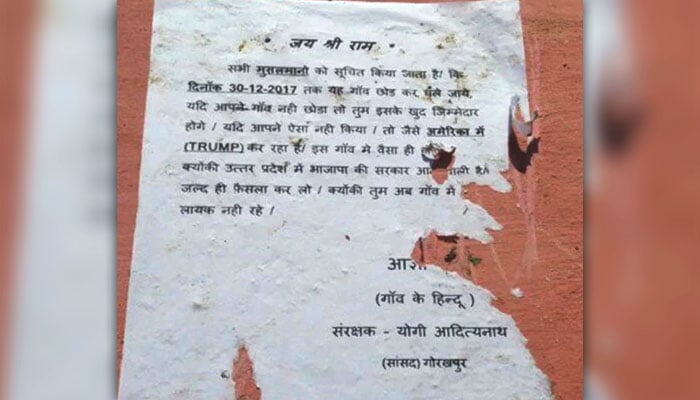 • जय श्री राम •
सभी मुसलमानो को सूचित किया जाता है/ कि
दिनॉक 30-12-2017 तक यह गॉव छोड कर चले जाये,
यदि आपने गॉव नही छोडा तो तुम इसके खुद जिम्मेदार
होगे / यदि आपने ऐसा नही किया / तो जैसे अमेरिका में
(TRUMP) कर रहा है/ इस गॉव मे वैसा ही
क्योंकी उत्तर प्रदेश में भाजापा की सरकार है/
जल्द ही फ़ेसला कर लो / क्योंकी तुम अब गॉव मे
लायक नही रहे / /
(गॉव के हिन्दू)
संरक्षक - योगी आदित्यनाथ
(सांसद) गोरखपुर